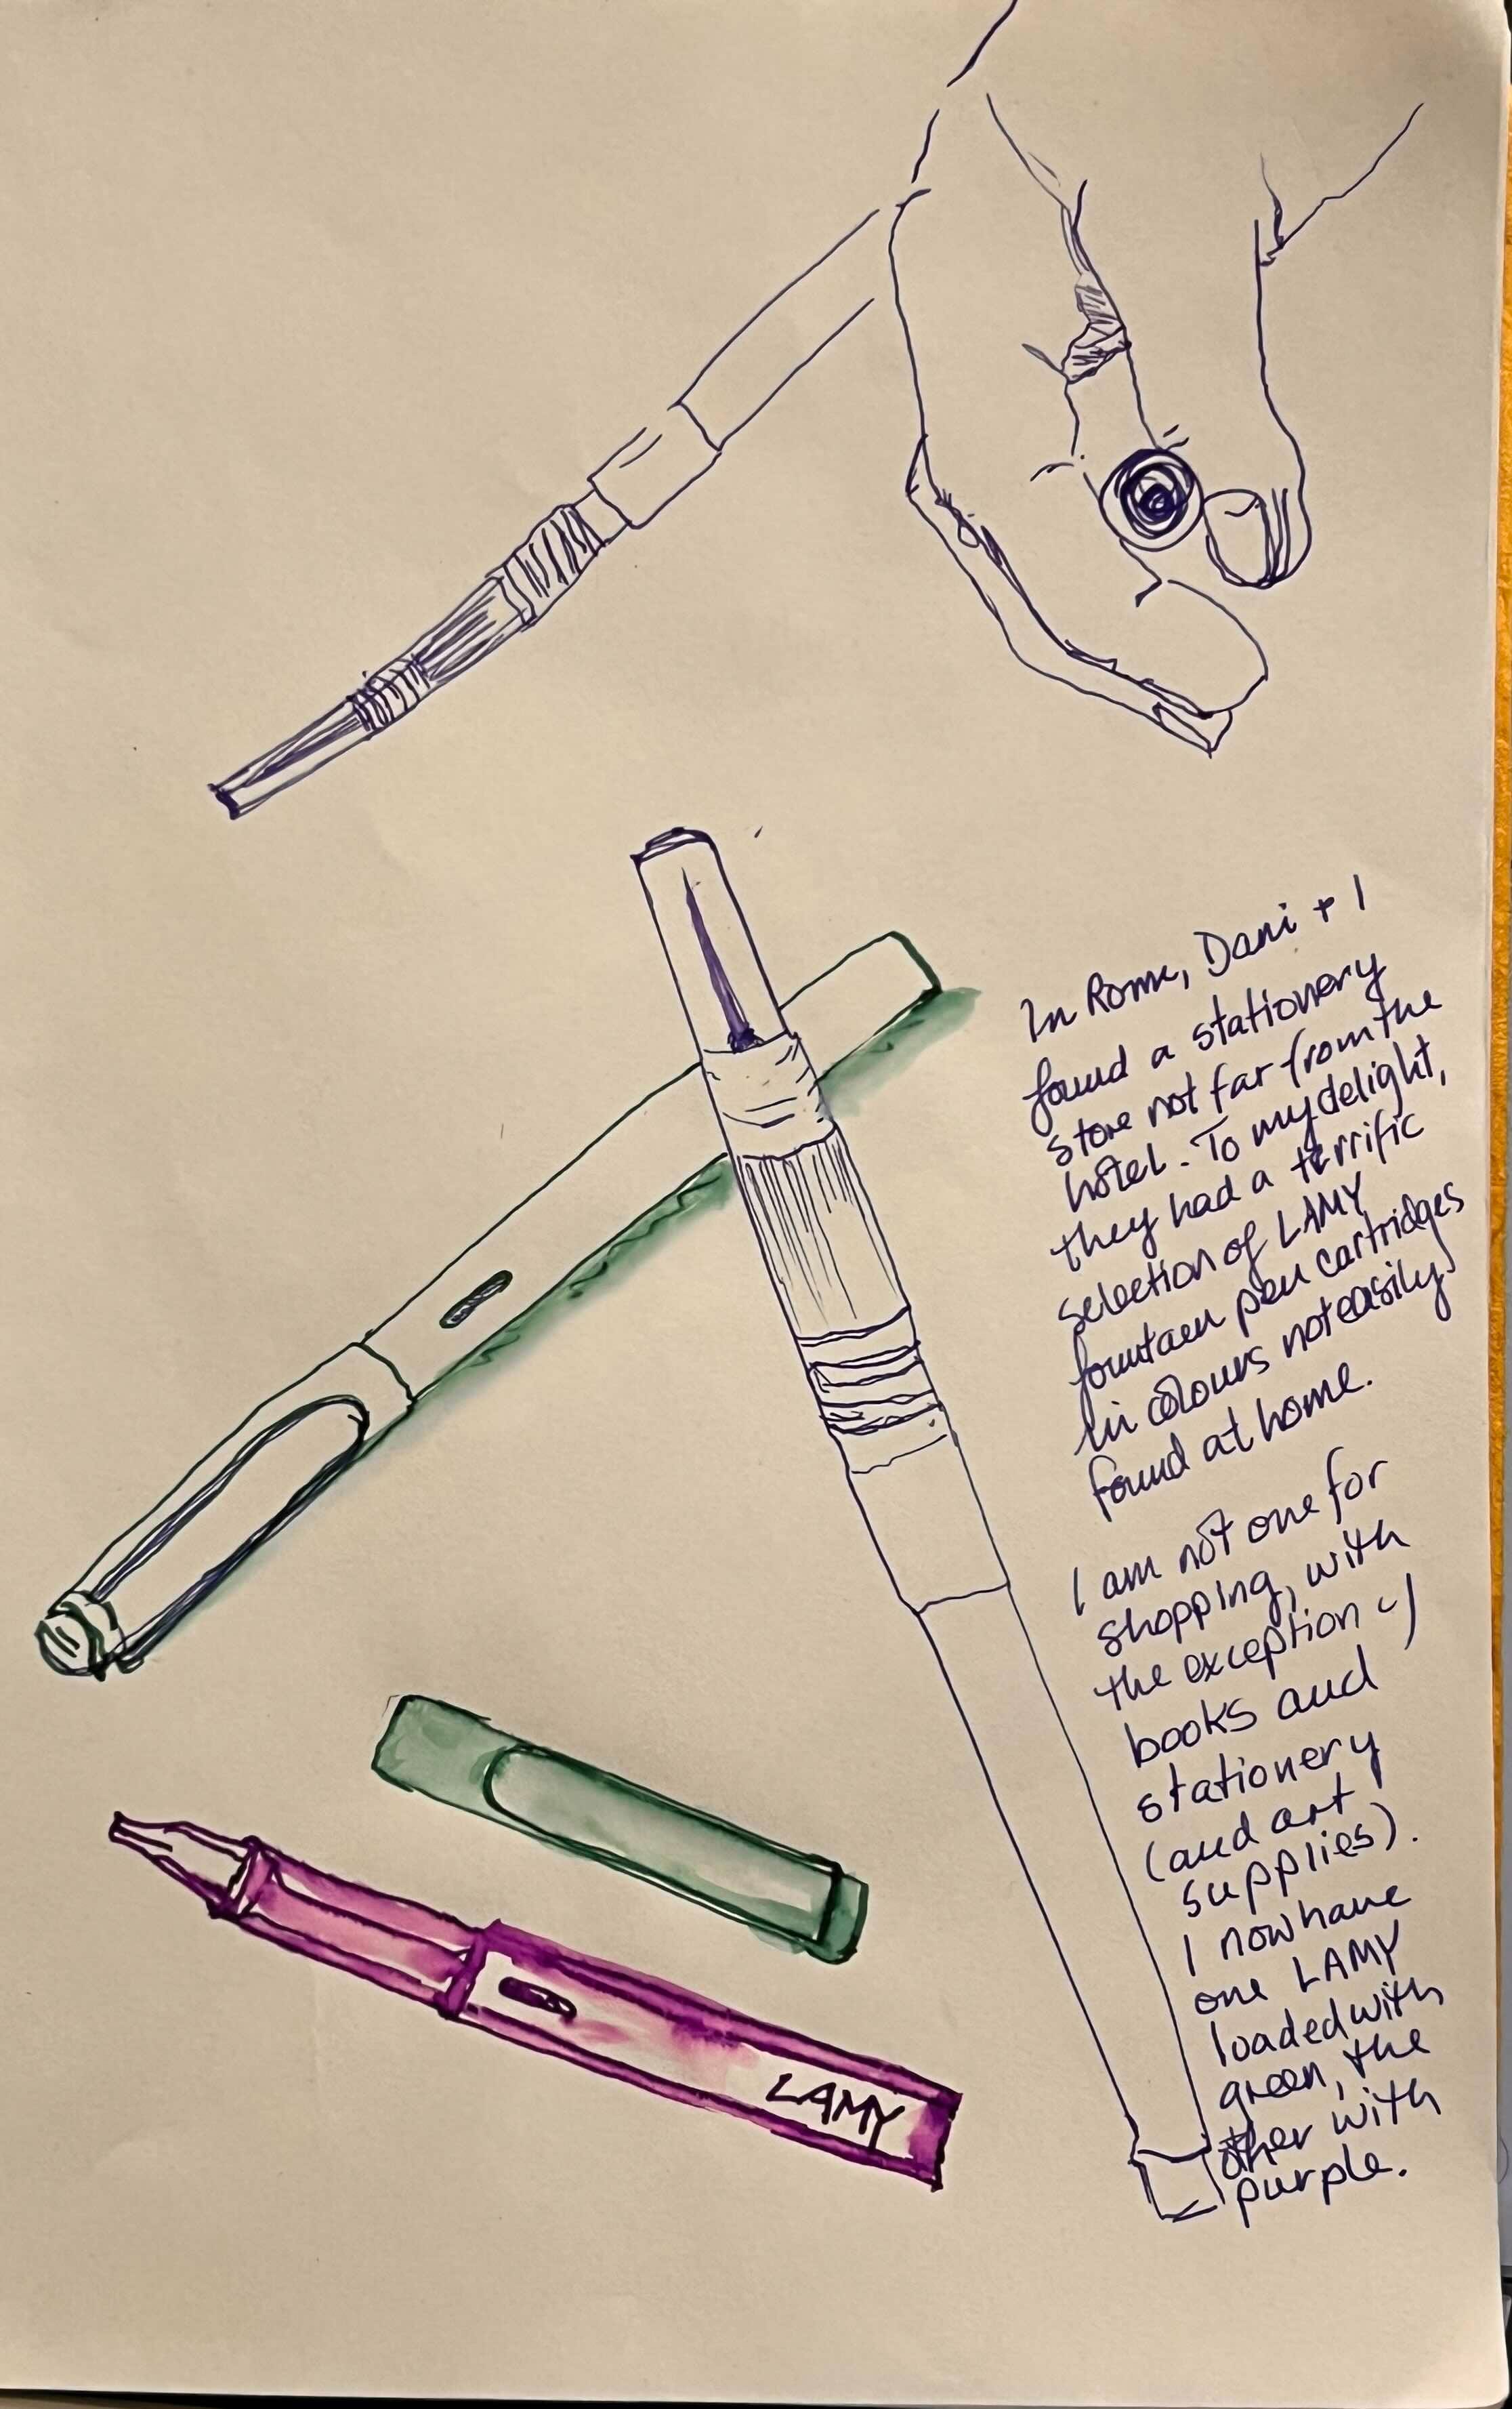 In Rome, Dani + I
found a stationery
store not far from the
hotel. To my delight,
they had a terrific
selection of LAMY
fountain pen cartridges
in colours not easily
found at home.
I am not one for
shopping, with
the exception of
books and
stationery
(and art
supplies).
I now have
one LAMY
loaded with
green, the
other with
purple.
LAMY